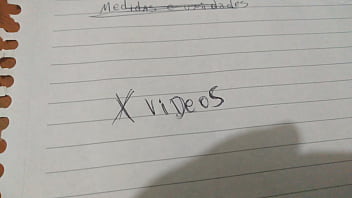 Medidas e unidades
X viDeos